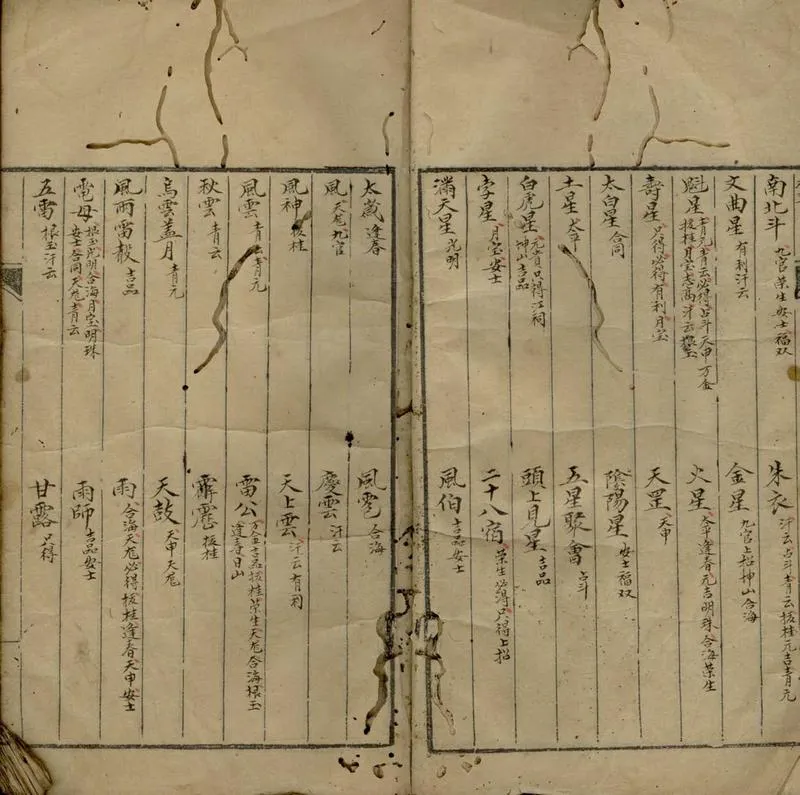 南北斗 九官荣生安士福双
朱衣 汗云占斗青云拔桂元吉青元
文曲星 有利汗云
金星 九官上招坤山合海
魁星 青元青云必得占斗天申万金
拔桂月宝志高汗云根玉
壽星 只得必得有利月宝
天罡 天申
太白星 合同
陰陽星 安士福双
土星 太平
五星聚會 占斗
白虎星 元貴只得江祠
坤山吉品
頭上見星 吉品
孛星 月宝安士
二十八宿 荣生必得只得上招
滿天星 光明
風伯 吉品安士
太歲 逢春
風雹 合海
風 天龙九官
慶雲 汗云
風神 拔桂
天上雲 汗云有利
風雲 青云青元
雷公 万金吉品拔桂荣生天龙合海根玉
逢春日山
秋雲 青云
霹靂 拔桂
烏雲盖月 青元
天鼓 天申天龙
風雨雷殺 吉品
雨 合海天龙必得拔桂逢春天申安士
電母 根玉光明合海月宝明珠
安士合同天龙青云
雨師 吉品安士
五雷 根玉汗云
甘露 只得